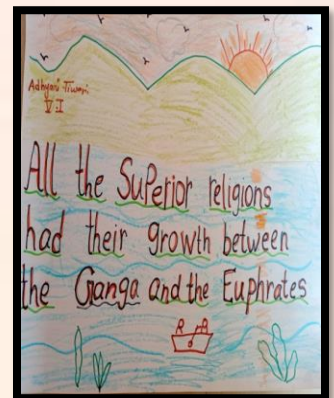 Adhyan Tiwari
V I
All the SuPerior religions
had their growth between
the Ganga and the Euphrates